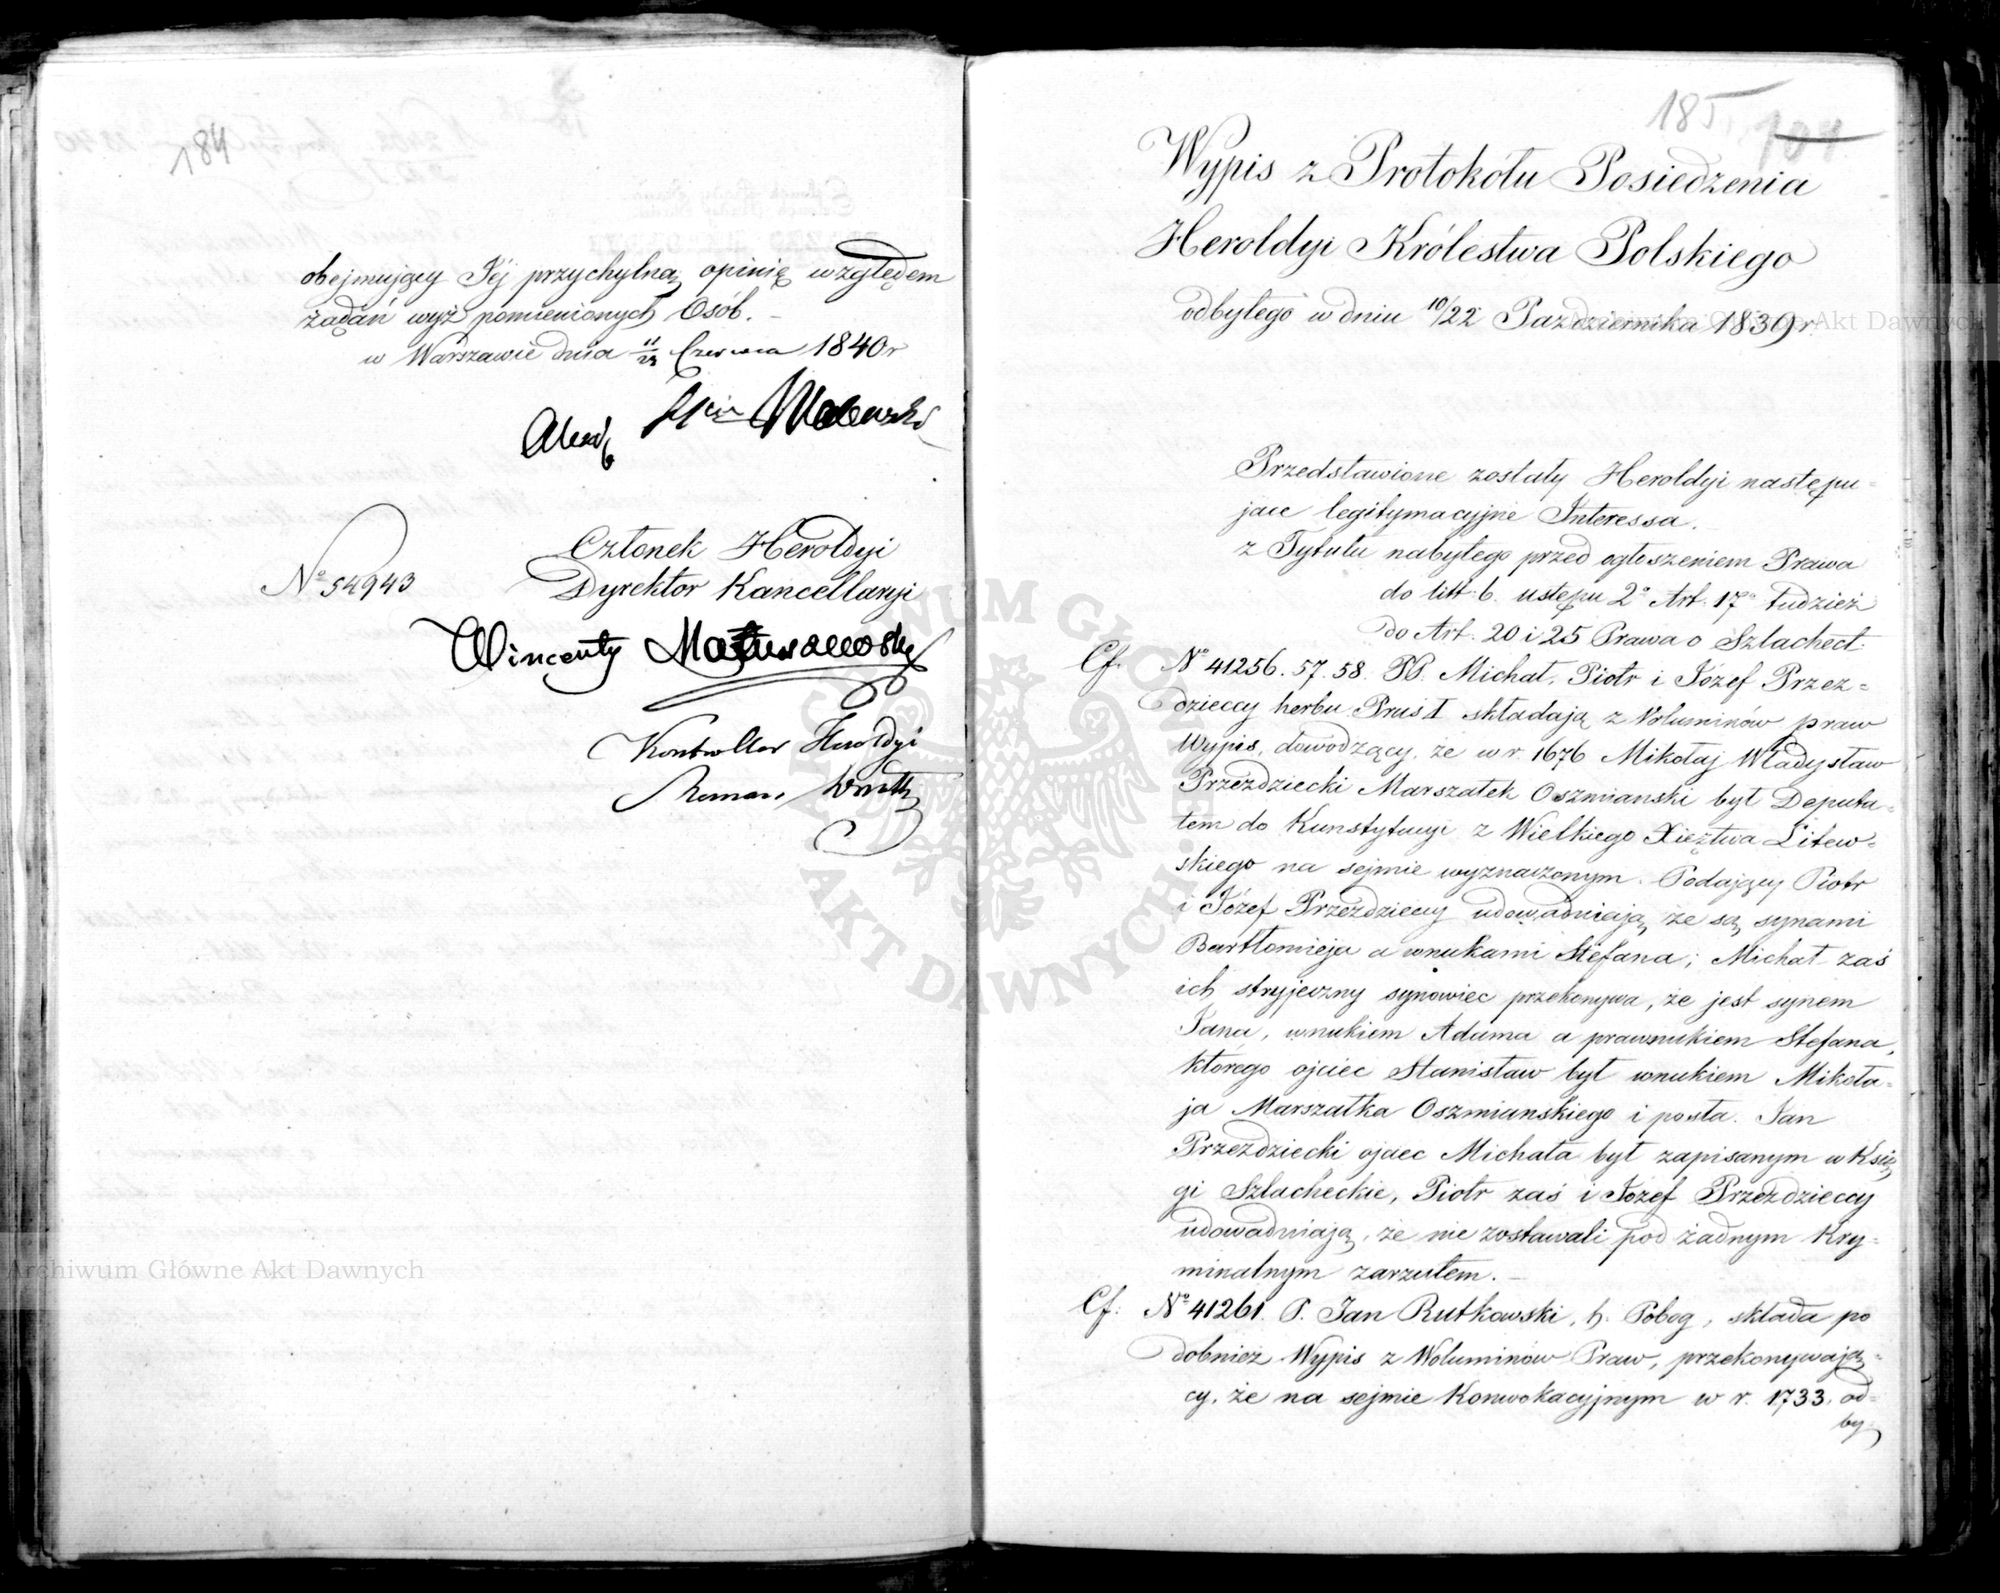 184
obejmujący Jej przychylną opinię względem
żądań wyż pomienionych Osób. –
w Warszawie dnia 11/23 Czerwca 1840 r
Członek Heroldyi
Dyrektor Kancellaryi
No 54943
Wincenty Matuszewski
Kontroller Heroldyi
Roman
185
Wypis z Protokółu Posiedzenia
Heroldyi Królestwa Polskiego
odbytego w dniu 10/22 Października 1839 r.
Przedstawione zostały Heroldyi następu=
jące legitymacyjne Interessa.
z Tytułu nabytego przed ogłoszeniem Prawa
do litt: b. ustępu 2o Art. 17o tudzież
do Art. 20 i 25 Prawa o Szlachect:
Cf. No 41256. 57. 58. PP. Michał, Piotr i Józef Przez=
dzieccy herbu Prus I składają z Voluminów praw
Wypis, dowodzący, że w r. 1676 Mikołaj Władysław
Przezdziecki Marszałek Oszmianski był Deputa=
tem do Konstytucyi z Wielkiego Xięztwa Litew=
skiego na sejmie wyznaczonym. Podający Piotr
i Józef Przezdzieccy udowadniają że są synami
Bartłomieja a wnukami Stefana; Michał zaś
ich stryjeczny synowiec przekonywa, że jest synem
Jana, wnukiem Adama a prawnukiem Stefana,
którego ojciec Stanisław był wnukiem Mikoła=
ja Marszałka Oszmianskiego i posła. Jan
Przezdziecki ojciec Michała był zapisanym w Księ
gi Szlacheckie, Piotr zaś i Józef Przezdzieccy
udowadniają, że nie zostawali pod żadnym Kry=
minalnym zarzutem. –
Cf: No 41261. P. Jan Rutkowski, h. Pobog, składa po
dobnież Wypis z Woluminów Praw, przekonywają=
cy, że na sejmie Konwokacyjnym w r. 1733, od=
by
Archiwum Główne Akt Dawnych
Archiwum Główne Akt Dawnych
ARCHIWUM GŁÓWNE AKT DAWNYCH